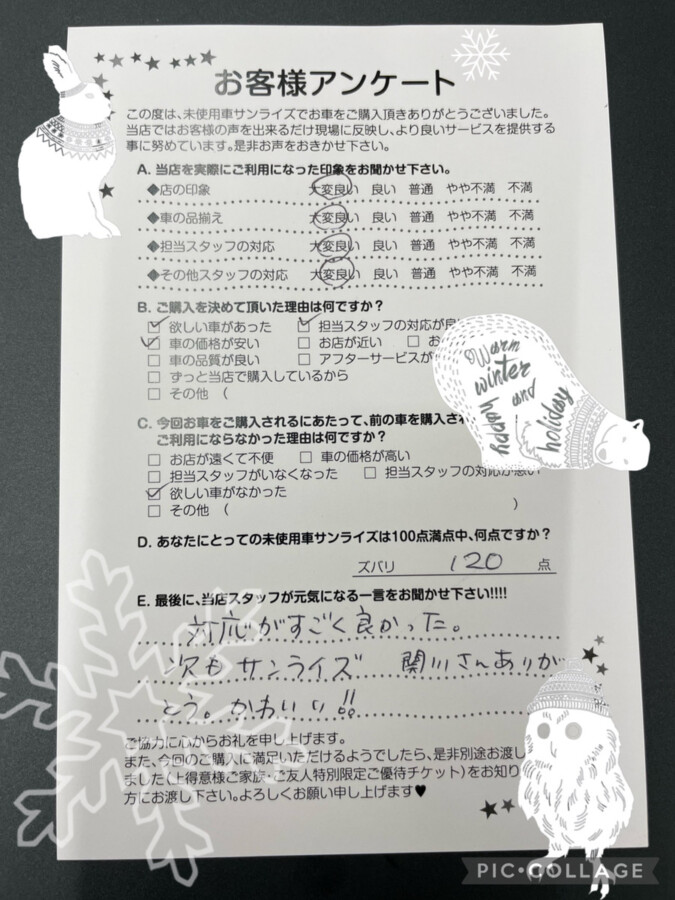 お客様アンケート
この度は、未使用車サンライズでお車をご購入頂きありがとうございました。
当店ではお客様の声を出来るだけ現場に反映し、より良いサービスを提供する
事に努めています。是非お声をおきかせ下さい。
A. 当店を実際にご利用になった印象をお聞かせ下さい。
◆店の印象 大変良い 良い 普通 やや不満 不満
◆車の品揃え 大変良い 良い 普通 やや不満 不満
◆担当スタッフの対応 大変良い 良い 普通 やや不満 不満
◆その他スタッフの対応 大変良い 良い 普通 やや不満 不満
B. ご購入を決めて頂いた理由は何ですか?
☑ 欲しい車があった ☑ 担当スタッフの対応が良
☑ 車の価格が安い □ お店が近い □ お
□ 車の品質が良い □ アフターサービスが
□ ずっと当店で購入しているから
□ その他 (
Warm
winter
and
happy
holiday
C. 今回お車をご購入されるにあたって、前の車を購入され
ご利用にならなかった理由は何ですか?
□ お店が遠くて不便 □ 車の価格が高い
□ 担当スタッフがいなくなった □ 担当スタッフの対応が悪い
☑ 欲しい車がなかった
□ その他 ( )
D. あなたにとっての未使用車サンライズは100点満点中、何点ですか?
ズバリ 120 点
E. 最後に、当店スタッフが元気になる一言をお聞かせ下さい!!!!
対応がすごく良かった。
次もサンライズ 関川さんありが
とう。かわいい!!
ご協力に心からお礼を申し上げます。
また、今回のご購入に満足いただけるようでしたら、是非別途お渡し
ました(上得意様ご家族・ご友人特別限定ご優待チケット)をお知り
方にお渡し下さい。よろしくお願い申し上げます♥
PIC•COLLAGE